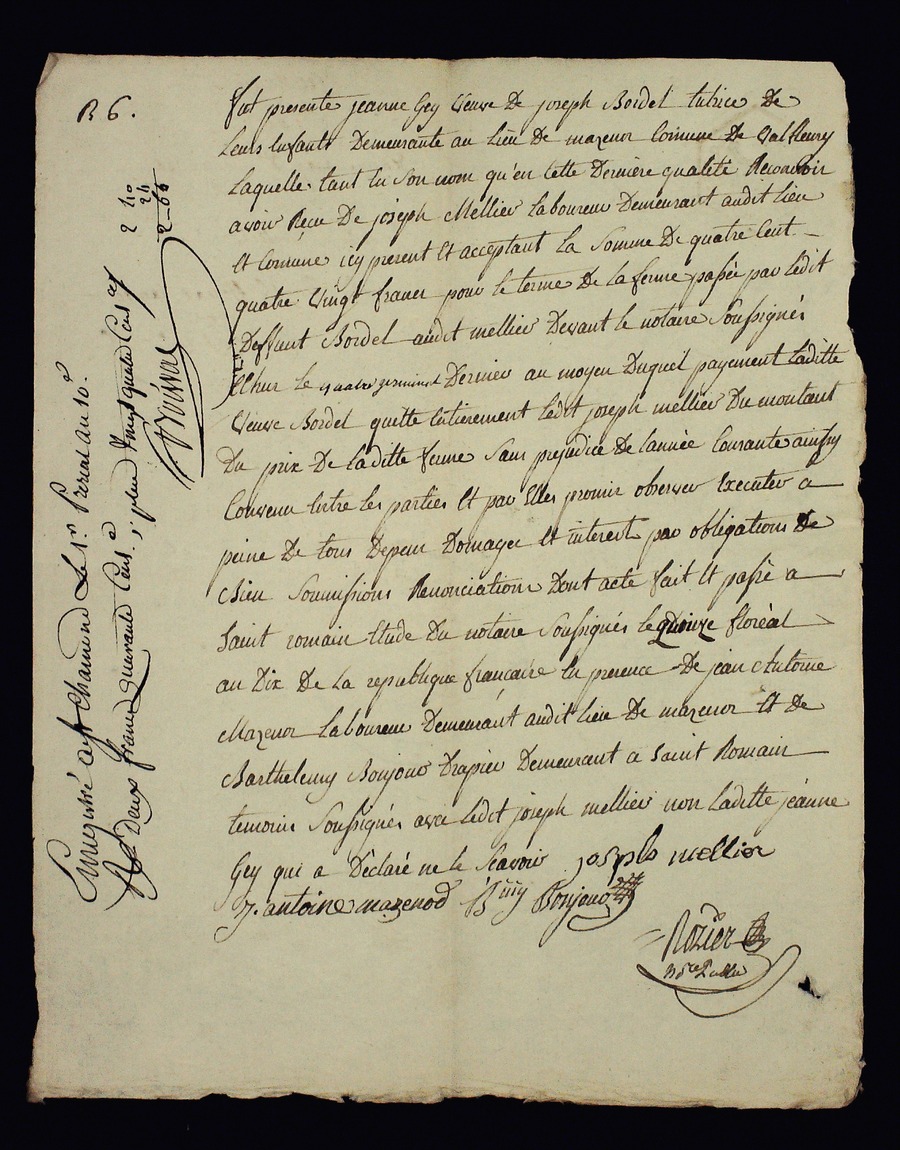 B 6.
fut presente jeanne Gey Veuve De joseph Bordel tutrice De
Leurs Enfants Demeurante au Lieu De mazenor Comune De Valfleury
Laquelle tant En Son nom qu'en Cette Derniere qualité Reconnoit
avoir Recu De joseph Mellier Laboureur Demeurant audit Lieu
Et Comune icy present Et acceptant La Somme De quatre Cent
quatre Vingt francs pour le terme De la ferme passée par Ledit
Deffunt Bordel audit mellier Devant le notaire Soussignés
Echue le quatre germinal Dernier au moyen Duquel payement Laditte
Veuve Bordel quitte Entierement Ledit joseph mellier Du montant
Du prix De laditte ferme Sans prejudice De l'année Courante ainsy
Convenu Entre les parties Et par Elles promis observer Executer a
peine De tous Depens Domages Et interets par obligations De
Bien Soumissions Renonciations Dont acte fait Et passé a
Saint romain Etude Du notaire Soussignés le quinze floréal
an Dix De La republique française En presence De jean Antoine
Mazenor Laboureur Demeurant audit Lieu De mazenor Et De
Barthelemy Bonjour Drapier Demeurant a Saint Romain
temoins Soussignés avec Ledit joseph mellier non Laditte jeanne
Gey qui a Déclaré ne le Scavoir joseph mellier
j. antoine mazenod B.my Bonjour
Rozier
Nore Public
Enregistré a St Chamond Le
Deux francs quarante Cent.
2 40
24
2-64